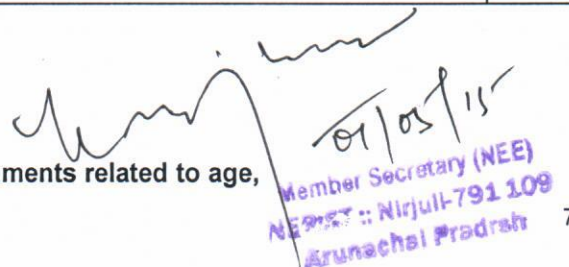 01/05/15
ments related to age,
Member Secretary (NEE)
NERIST :: Nirjuli-791 109
Arunachal Pradesh
7